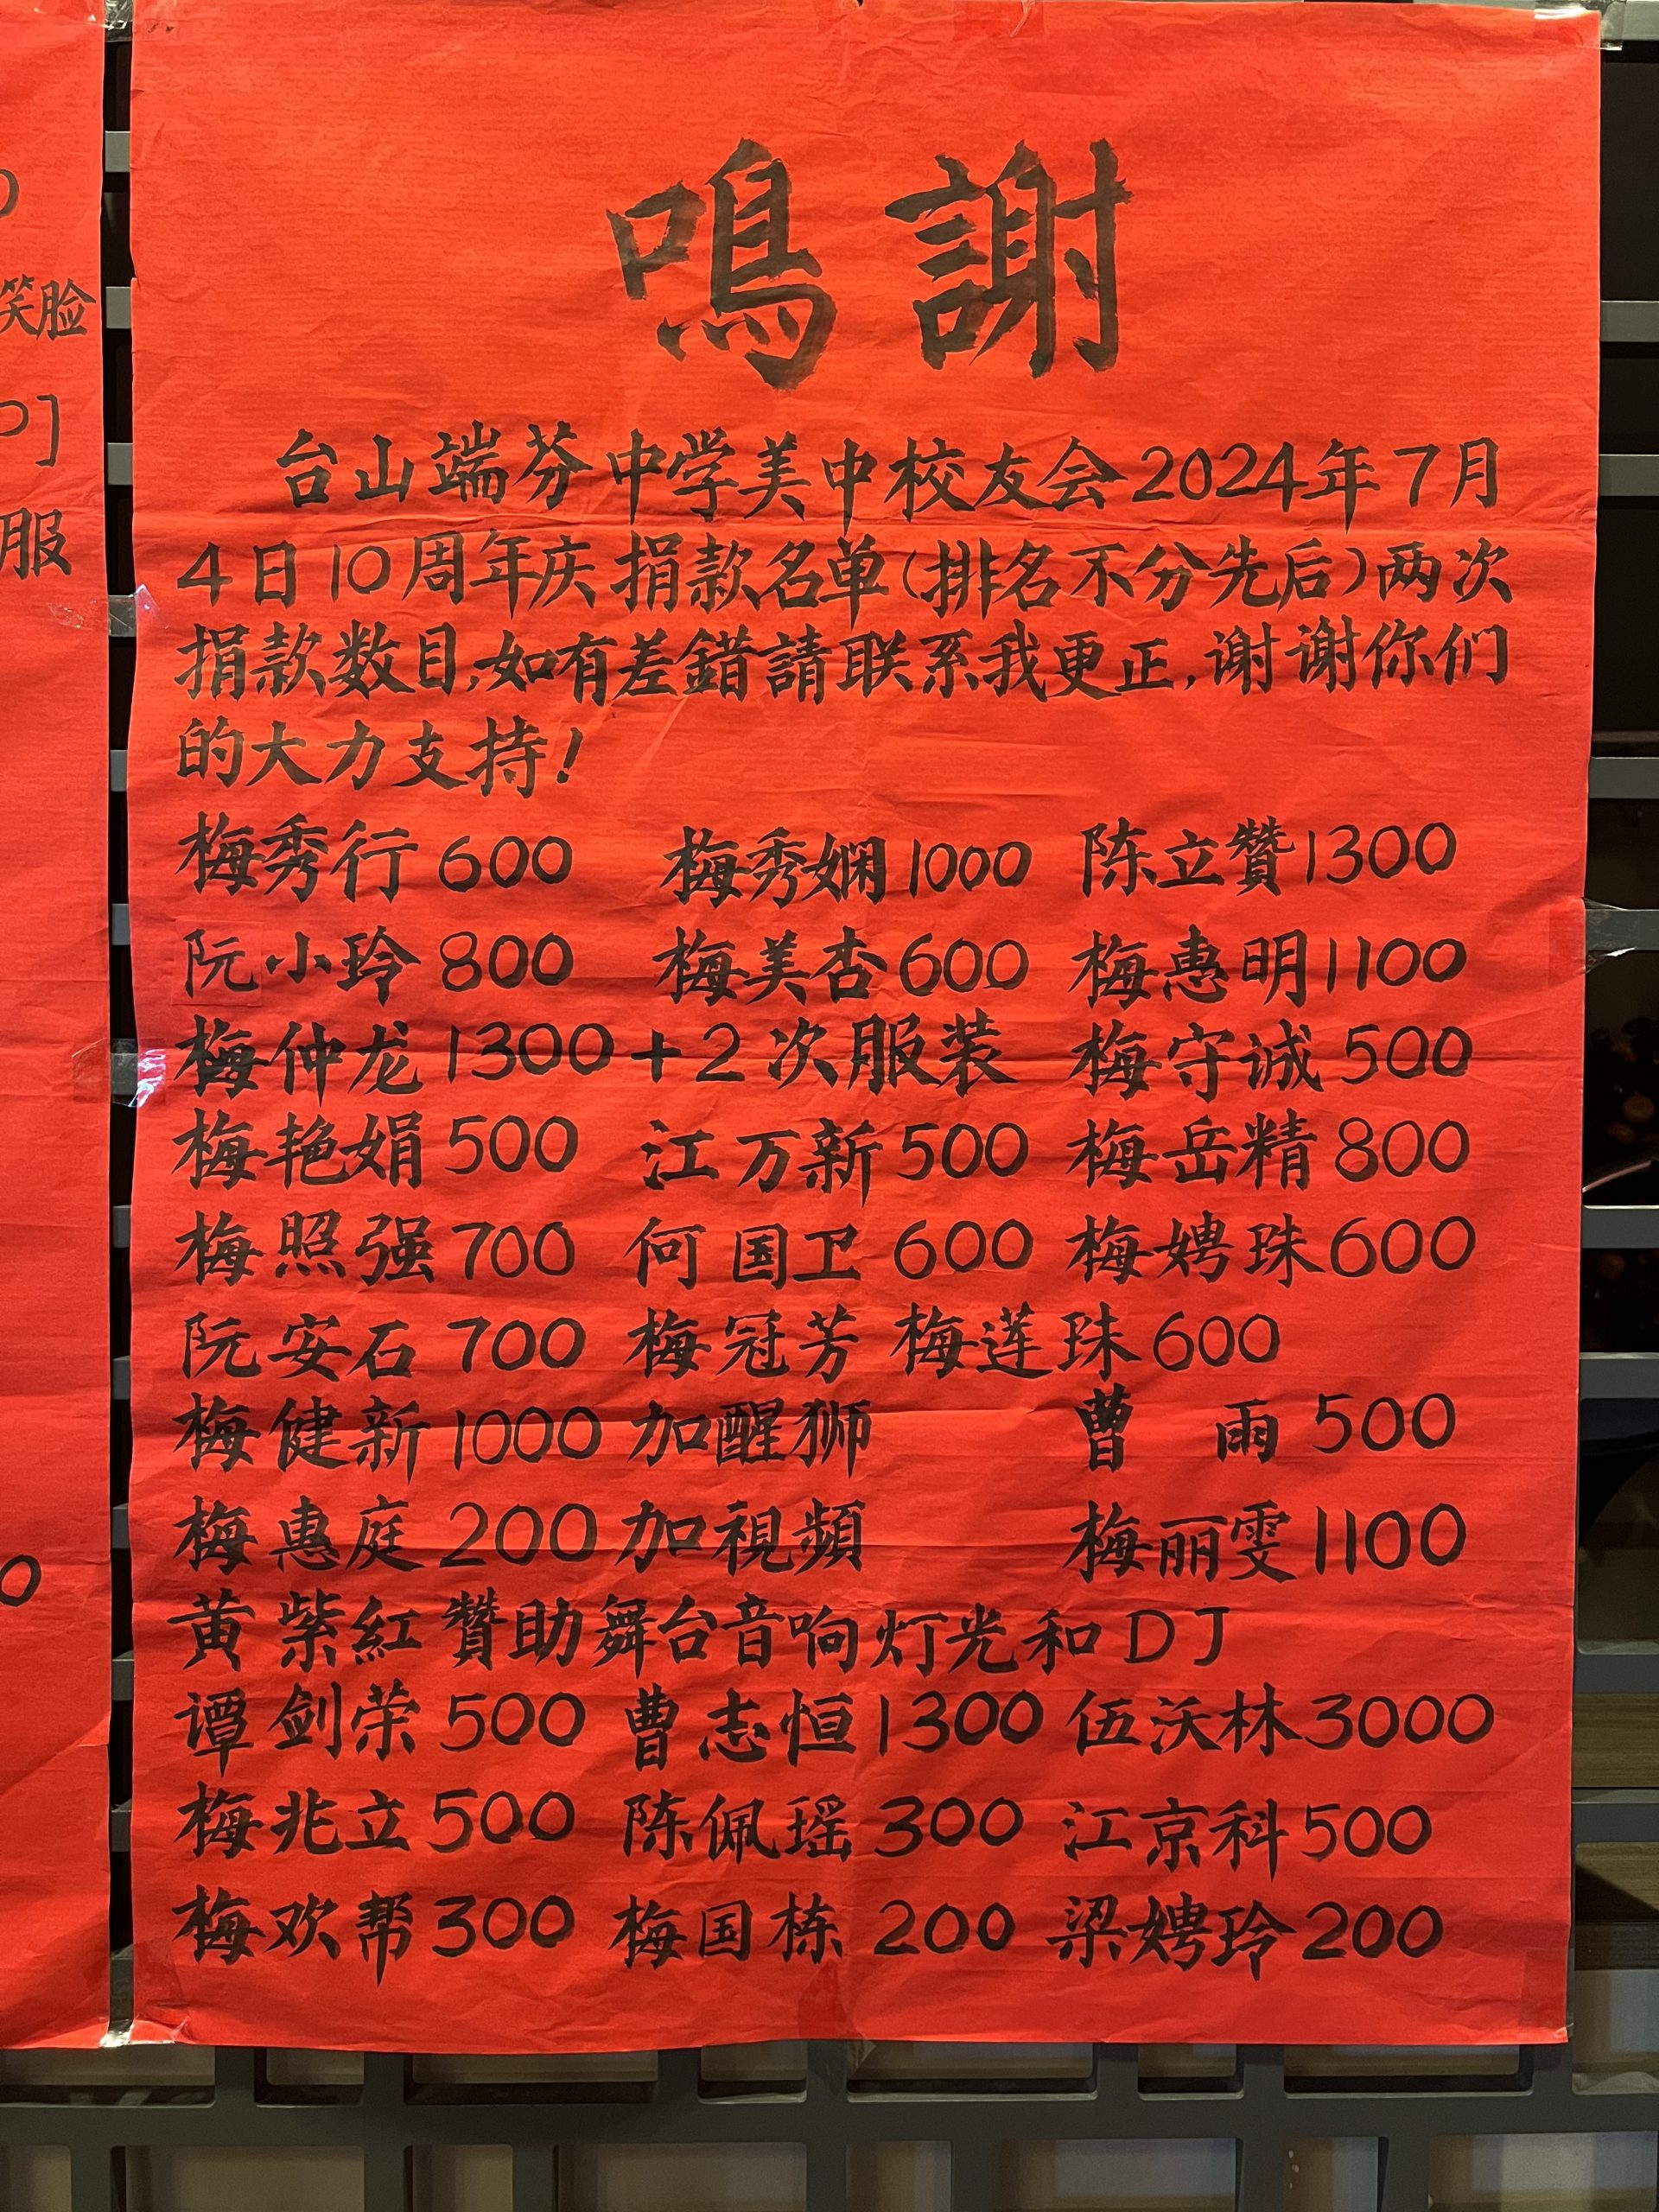 鳴謝
台山端芬中学美中校友会2024年7月
4日10周年庆捐款名单(排名不分先后)两次
捐款数目,如有差錯請联系我更正,谢谢你们
的大力支持!
梅秀行 600 梅秀娴 1000 陈立贊 1300
阮小玲 800 梅美杏 600 梅惠明 1100
梅仲龙 1300+2次服装 梅守诚 500
梅艳娟 500 江万新 500 梅岳精 800
梅照强 700 何国卫 600 梅娉珠 600
阮安石 700 梅冠芳 梅莲珠 600
梅健新 1000 加醒狮 曹雨 500
梅惠庭 200 加視頻 梅丽雯 1100
黄紫紅贊助舞台音响灯光和DJ
谭剑荣 500 曹志恒 1300 伍沃林 3000
梅兆立 500 陈佩瑶 300 江京科 500
梅欢帮 300 梅国栋 200 梁娉玲 200
笑脸
服